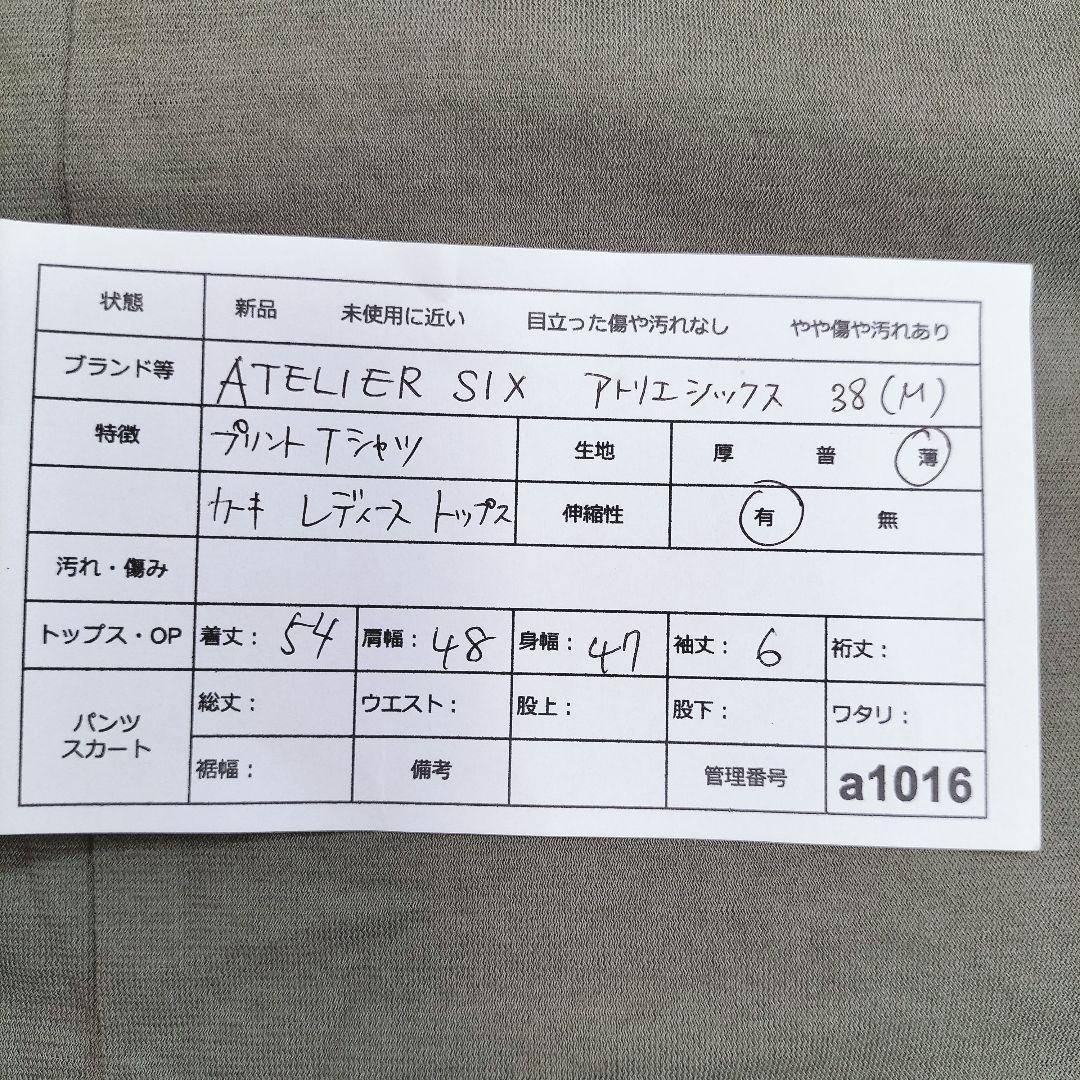 状態 新品 未使用に近い 目立った傷や汚れなし やや傷や汚れあり
ブランド等 ATELIER SIX アトリエシックス 38(M)
特徴 プリントTシャツ 生地 厚 普 薄
カーキ レディース トップス 伸縮性 有 無
汚れ・傷み
トップス・OP 着丈: 54 肩幅: 48 身幅: 47 袖丈: 6 裄丈:
パンツ スカート 総丈: ウエスト: 股上: 股下: ワタリ:
裾幅: 備考 管理番号 a1016